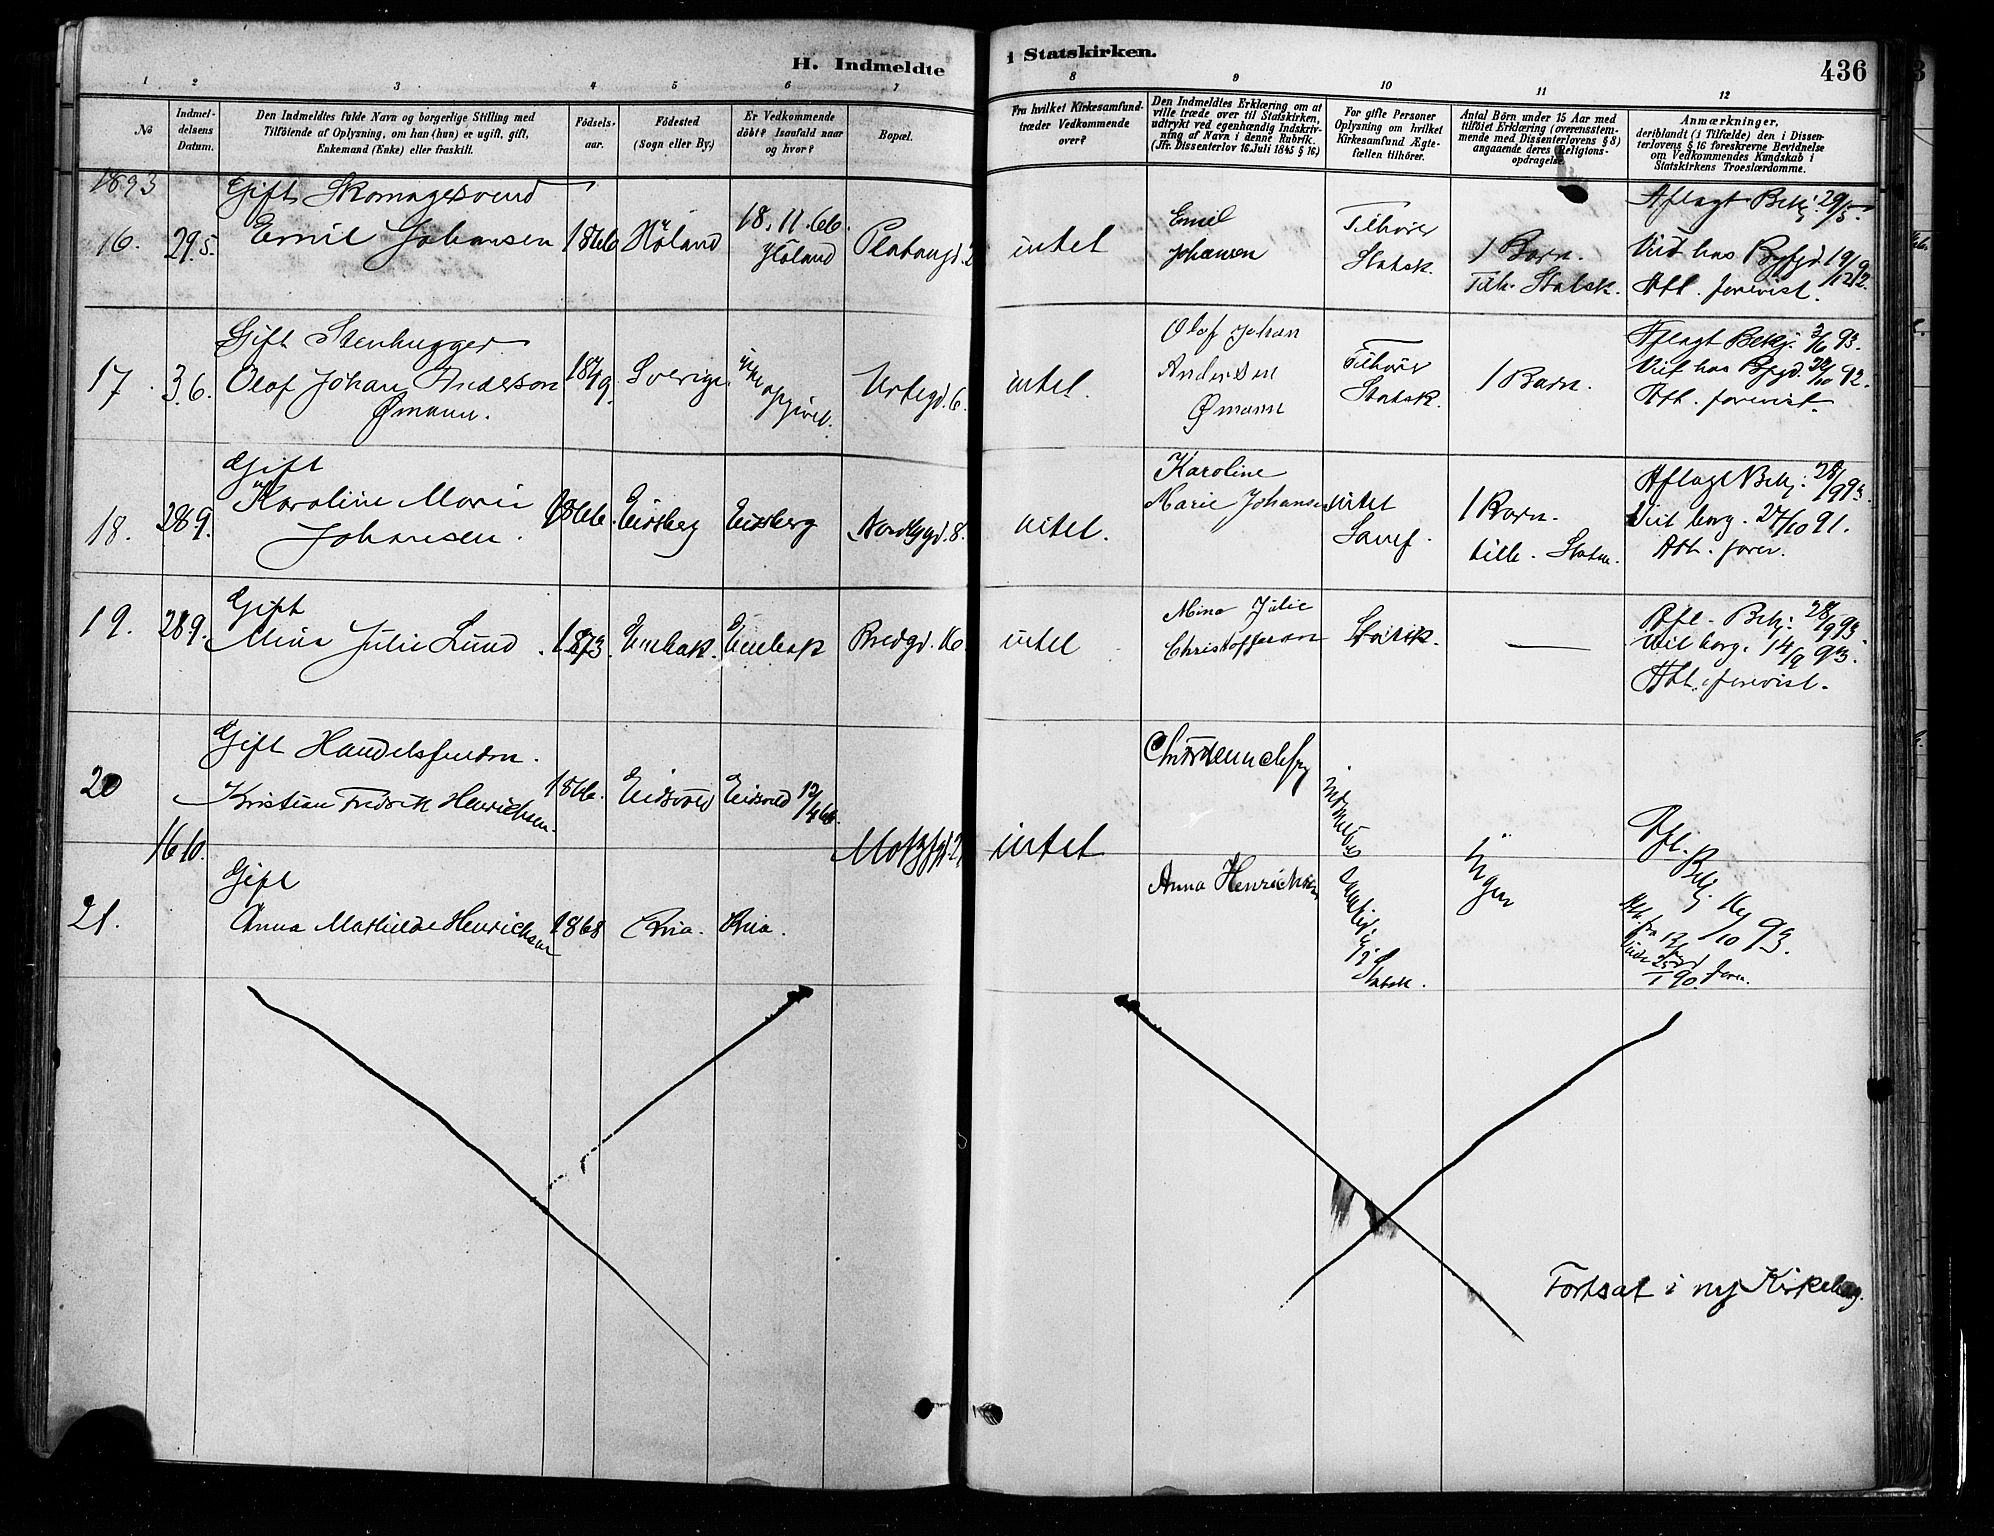 H. Indmeldte i Statskirken.
436
1 2 3 4 5 6 7 8 9 10 11 12
No
Indmeldelsens Datum.
Den Indmeldtes fulde Navn og borgerlige Stilling med
Tilföiende af Oplysning, om han (hun) er ugift, gift,
Enkemand (Enke) eller fraskilt.
Födselsaar.
Födested
(Sogn eller By.)
Er Vedkommende
döbt? Isaafald naar
og hvor?
Bopæl.
Fra hvilket Kirkesamfund
træder Vedkommende
over?
Den Indmeldtes Erklæring om at
ville træde over til Statskirken,
udtrykt ved egenhændig Indskrivning
af Navn i denne Rubrik.
(Jfr. Dissenterlov 16 Juli 1845 § 16)
For gifte Personer
Oplysning om hvilket
Kirkesamfund Ægtefællen
tilhörer.
Antal Börn under 15 Aar med
tilföiet Erklæring (overensstemmende
med Dissenterlovens § 8)
angaaende deres Religionsopdragelse.
Anmærkninger,
deriblandt (i Tilfælde) den i Dissenterlovens
§ 16 foreskrevne Bevidnelse
om Vedkommendes Kundskab i
Statskirkens Troeslærdomme.
1893
16. 29 5. Gift Skomagersvend
Emil Johansen 1866 Höland 18.11.66. Höland Platougd. 2
intet Emil Johansen Tilhörer Statsk. 1 Barn. Tilh. Statsk.
Aflagt Bekj. 29/5.
Viet hos Byfgd. 19/12 92.
Att. forevist.
17. 3 6. Gift Stenhugger
Olaf Johan Anderson
Ømann. 1849. Sverige ikke opgivet. Urtegd. 6.
intet. Olof Johan Andersen Ømann Tilhörer Statsk. 1 Barn.
Aflagt Bekj. 3/6 93.
Viet hos Byfgd. 10 92.
Att. forevist.
18. 28 9. Gift
Karoline Marie
Johansen. 1866. Eidsberg Eidsberg Nordbygd. 8.
intet. Karoline Marie Johansen intet Samf. 1 Barn. tilh. Statsk.
Aflagt Bekj. 28/9 93.
Viet borg. 27/10 91.
Att. forev.
19. 28 9. Gift
Mina Julie Lund. 1873. Enebak. Enebak Bredgd. 16.
intet Mina Julie Christoffersen Statsk. —
Afl. Bekj. 28/9 93.
Viet borg. 14/9 93.
Att. forevist.
20 Gift Handelsfuldm.
Kristian Fredrik Henrichsen. 1866. Eidsvold Eidsvold 12/4 66.
16 10. Motzfgd. 2
intet
indmeldes samtidig i Statsk.
Ingen
Afl. Bekj. 16/10 93.
21. Gift
Anna Mathilde Henrichsen 1868 Kria. Kria.
Anna Henrichsen
Att. fra
90. forev.
Fortsat i ny Kirkebog.